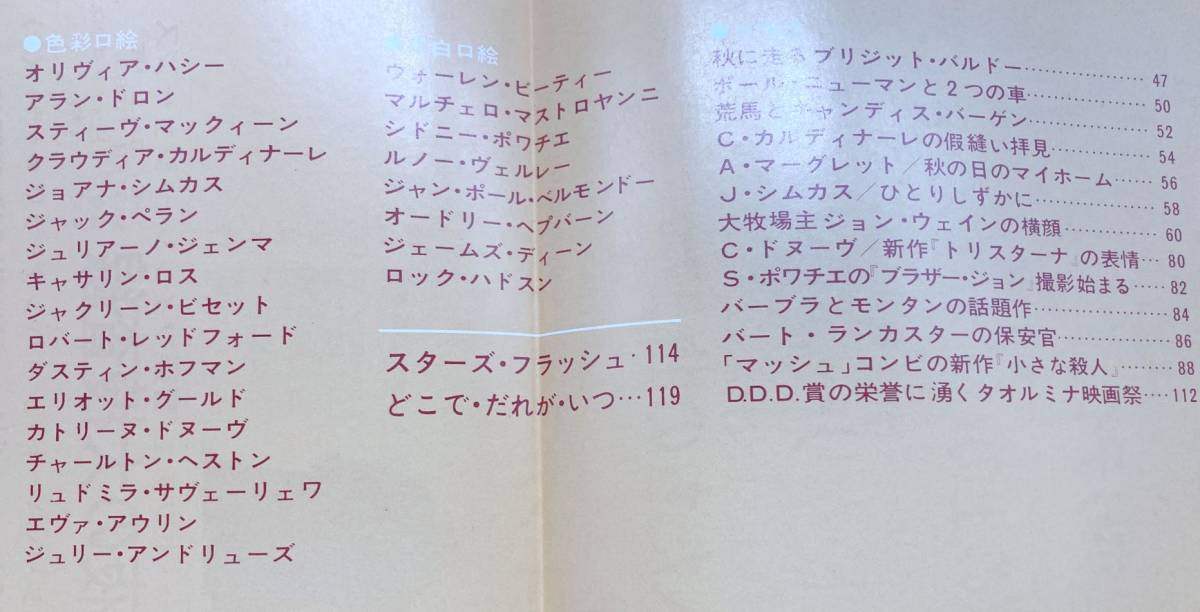 ●色彩口絵
オリヴィア・ハシー
アラン・ドロン
スティーヴ・マックィーン
クラウディア・カルディナーレ
ジョアナ・シムカス
ジャック・ペラン
ジュリアーノ・ジェンマ
キャサリン・ロス
ジャクリーン・ビセット
ロバート・レッドフォード
ダスティン・ホフマン
エリオット・グールド
カトリーヌ・ドヌーヴ
チャールトン・ヘストン
リュドミラ・サヴェーリェワ
エヴァ・アウリン
ジュリー・アンドリューズ
白口絵
ウォーレン・ビーティー
マルチェロ・マストロヤンニ
シドニー・ポワチエ
ルノー・ヴェルレー
ジャン・ポール・ベルモンドー
オードリー・ヘプバーン
ジェームズ・ディーン
ロック・ハドスン
スターズ・フラッシュ・114
どこで・だれが・いつ…119
秋に走るブリジット・バルドー……………47
ポール・ニューマンと2つの車……………50
荒馬とキャンディス・バーゲン……………52
C・カルディナーレの假縫い拝見…………54
A・マーグレット／秋の日のマイホーム……56
J・シムカス／ひとりしずかに……………58
大牧場主ジョン・ウェインの横顔…………60
C・ドヌーヴ／新作『トリスターナ』の表情…80
S・ポワチエの『ブラザー・ジョン』撮影始まる……82
バーブラとモンタンの話題作………………84
バート・ランカスターの保安官……………86
「マッシュ」コンビの新作『小さな殺人』………88
D.D.D.賞の栄誉に湧くタオルミナ映画祭…112